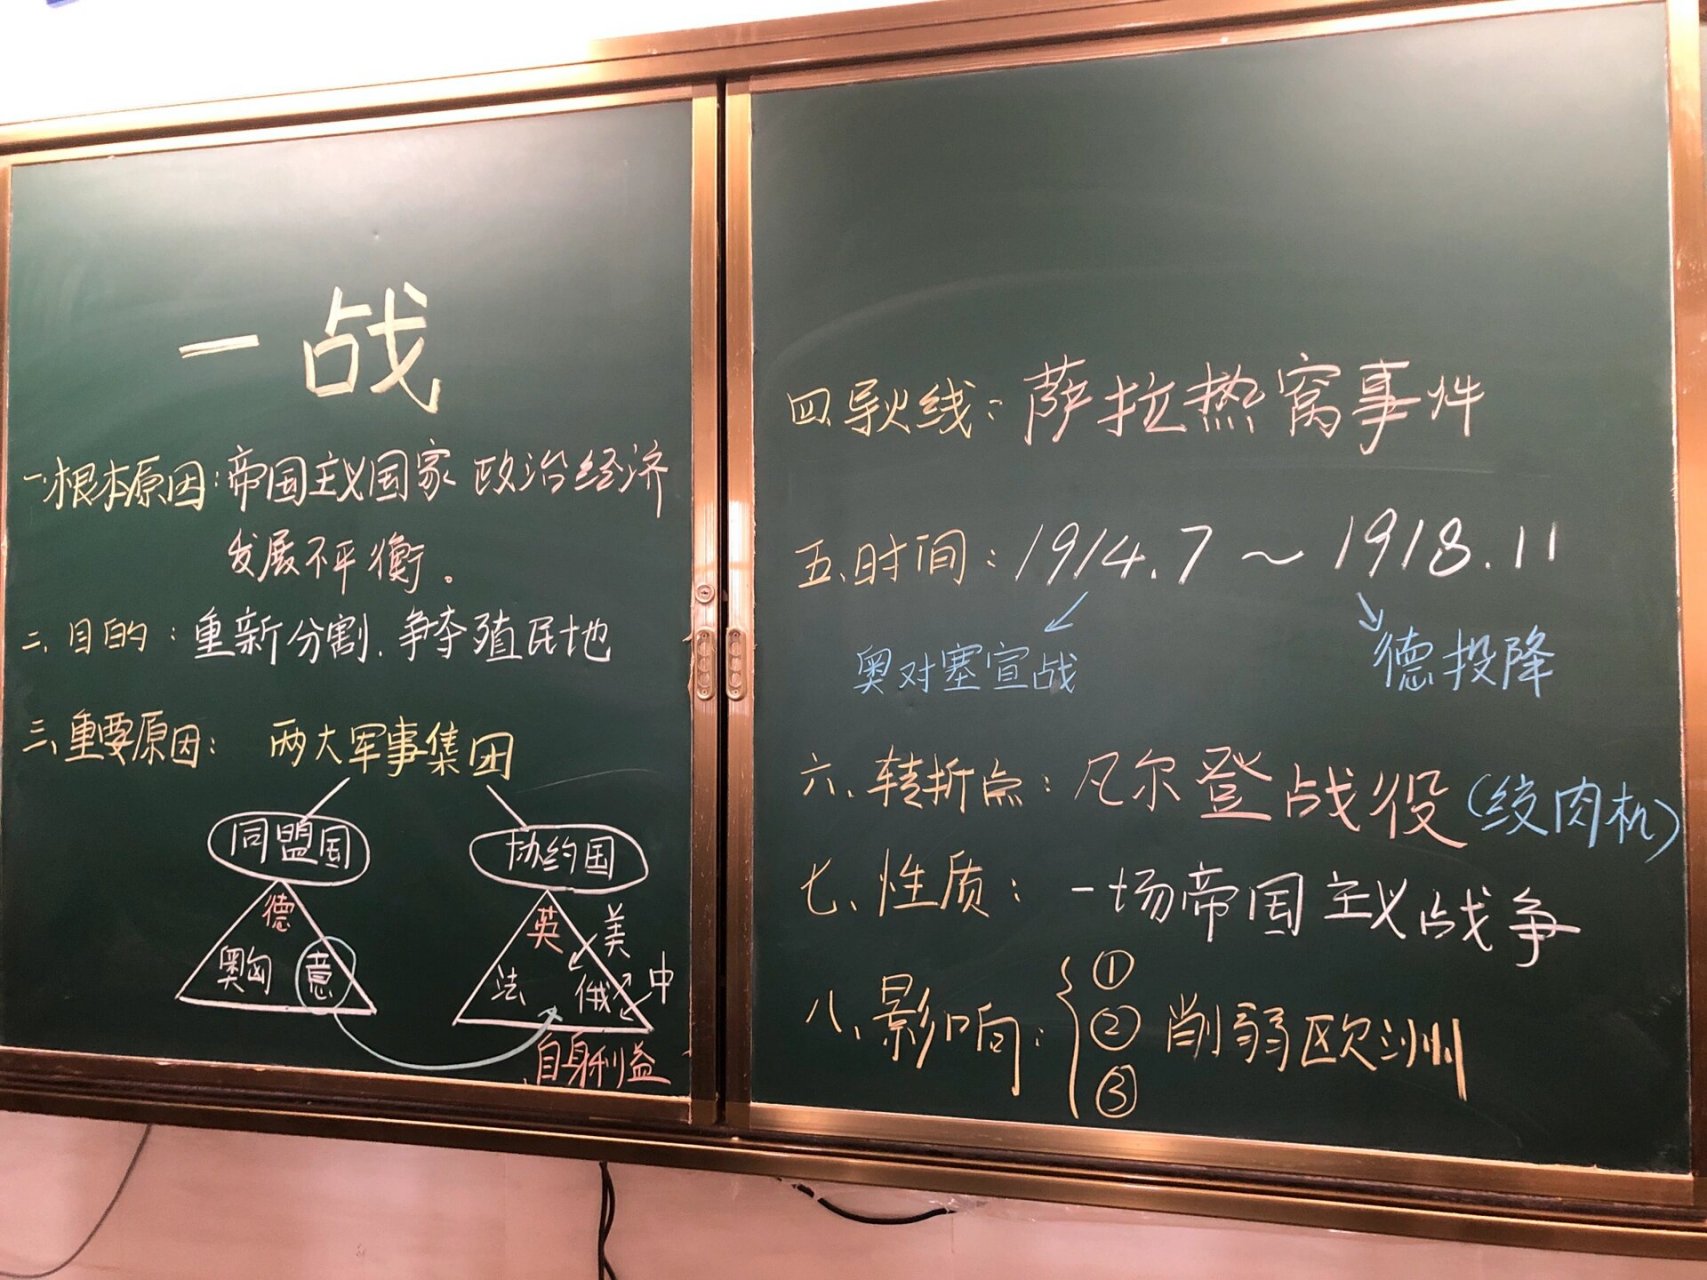 一战
一.根本原因:帝国主义国家 政治经济
发展不平衡。
二、目的:重新分割、争夺殖民地
三、重要原因: 两大军事集团
同盟国
协约国
德
奥匈 意
英 美
法 俄 中
自身利益
四.导火线:萨拉热窝事件
五.时间:1914.7~1918.11
奥对塞宣战
德投降
六、转折点:凡尔登战役(绞肉机)
七、性质: 一场帝国主义战争
八、影响:
①
② 削弱欧洲
③